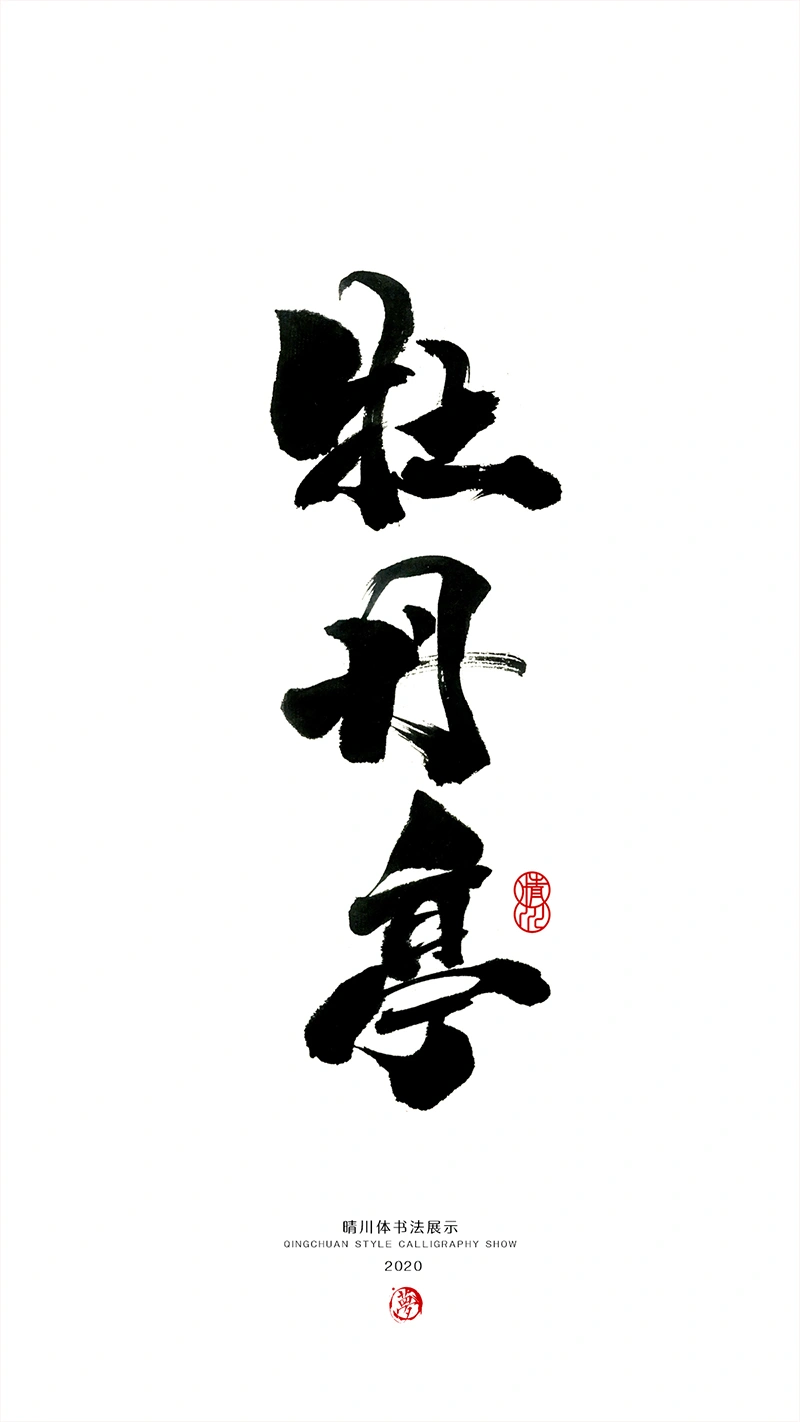 牡丹亭
晴川
晴川体书法展示
QINGCHUAN STYLE CALLIGRAPHY SHOW
2020
夢